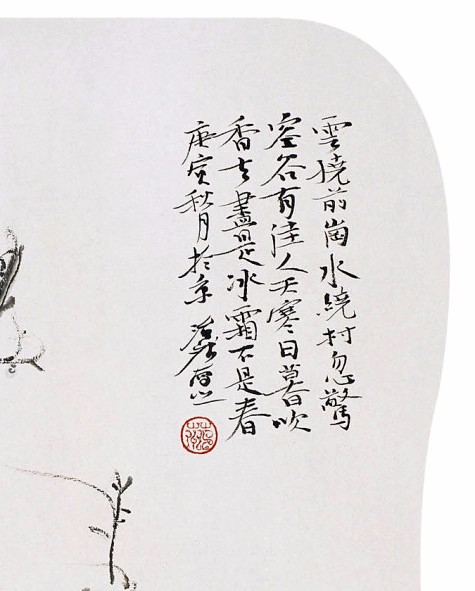 雲撓前崗水繞村忽驚
空谷有佳人天寒日暮吹
香去盡是冰霜不是春
庚寅秋月於京